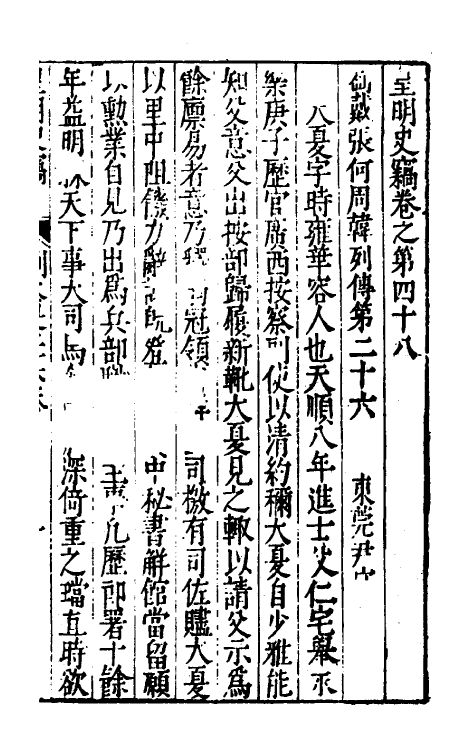 皇明史竊卷之第四十八
劉戴張何周韓列傳第二十六 東莞尹
大夏字時雍華容人也天順八年進士父仁宅舉永
樂庚子歷官廣西按察副使以清約稱大夏自少雅能
知父意父出按部歸履新靴大夏見之輙以請父示為
餘廪易者意乃 冠領 司檄有司佐贐大夏
以里中 力辭 既登 中秘書解館當留願
以勲業自見乃出為兵部職 凡歷郎署十餘
年益明 天下事大司馬 深倚重之璫直時欲
皇明史竊